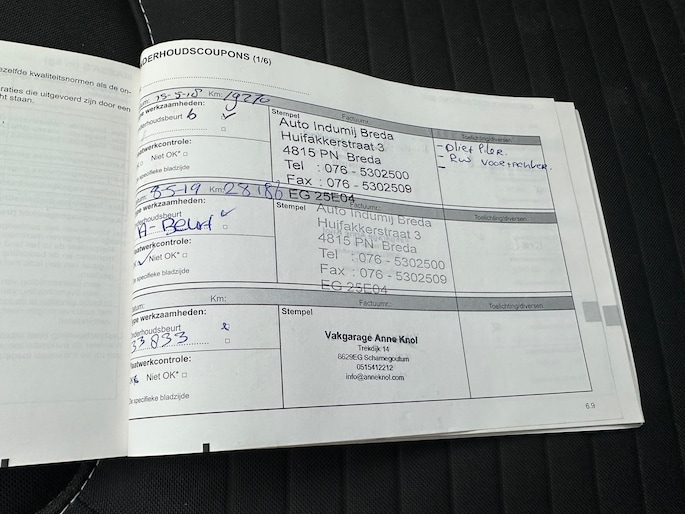 ezelfde kwaliteitsnormen als de on-
raties die uitgevoerd zijn door een
cht staan.
NDERHOUDSCOUPONS (1/6)
Km: 19270
Type werkzaamheden:
Onderhoudsbeurt b
Plaatwerkcontrole:
Niet OK*
specifieke bladzijde
Factuurnr.:
Stempel
Auto Indumij Breda
Huifakkerstraat 3
4815 PN Breda
Tel : 076 - 5302500
Fax : 076 - 5302509
EG 25E04
Toelichting/diversen
- Oliefilter
- RW voor+achter.
-
Km: 28186
Type werkzaamheden:
Onderhoudsbeurt
A-Beurt
Plaatwerkcontrole:
OK Niet OK*
Zie specifieke bladzijde
Factuurnr.:
Stempel
Auto Indumij Breda
Huifakkerstraat 3
4815 PN Breda
Tel : 076 - 5302500
Fax : 076 - 5302509
EG 25E04
Toelichting/diversen
Datum: Km:
Type werkzaamheden:
Onderhoudsbeurt
33833
Plaatwerkcontrole:
OK Niet OK*
Zie specifieke bladzijde
Factuurnr.:
Stempel
Vakgarage Anne Knol
Trekdijk 14
8629EG Scharnegoutum
0515412212
info@anneknol.com
Toelichting/diversen
6.9